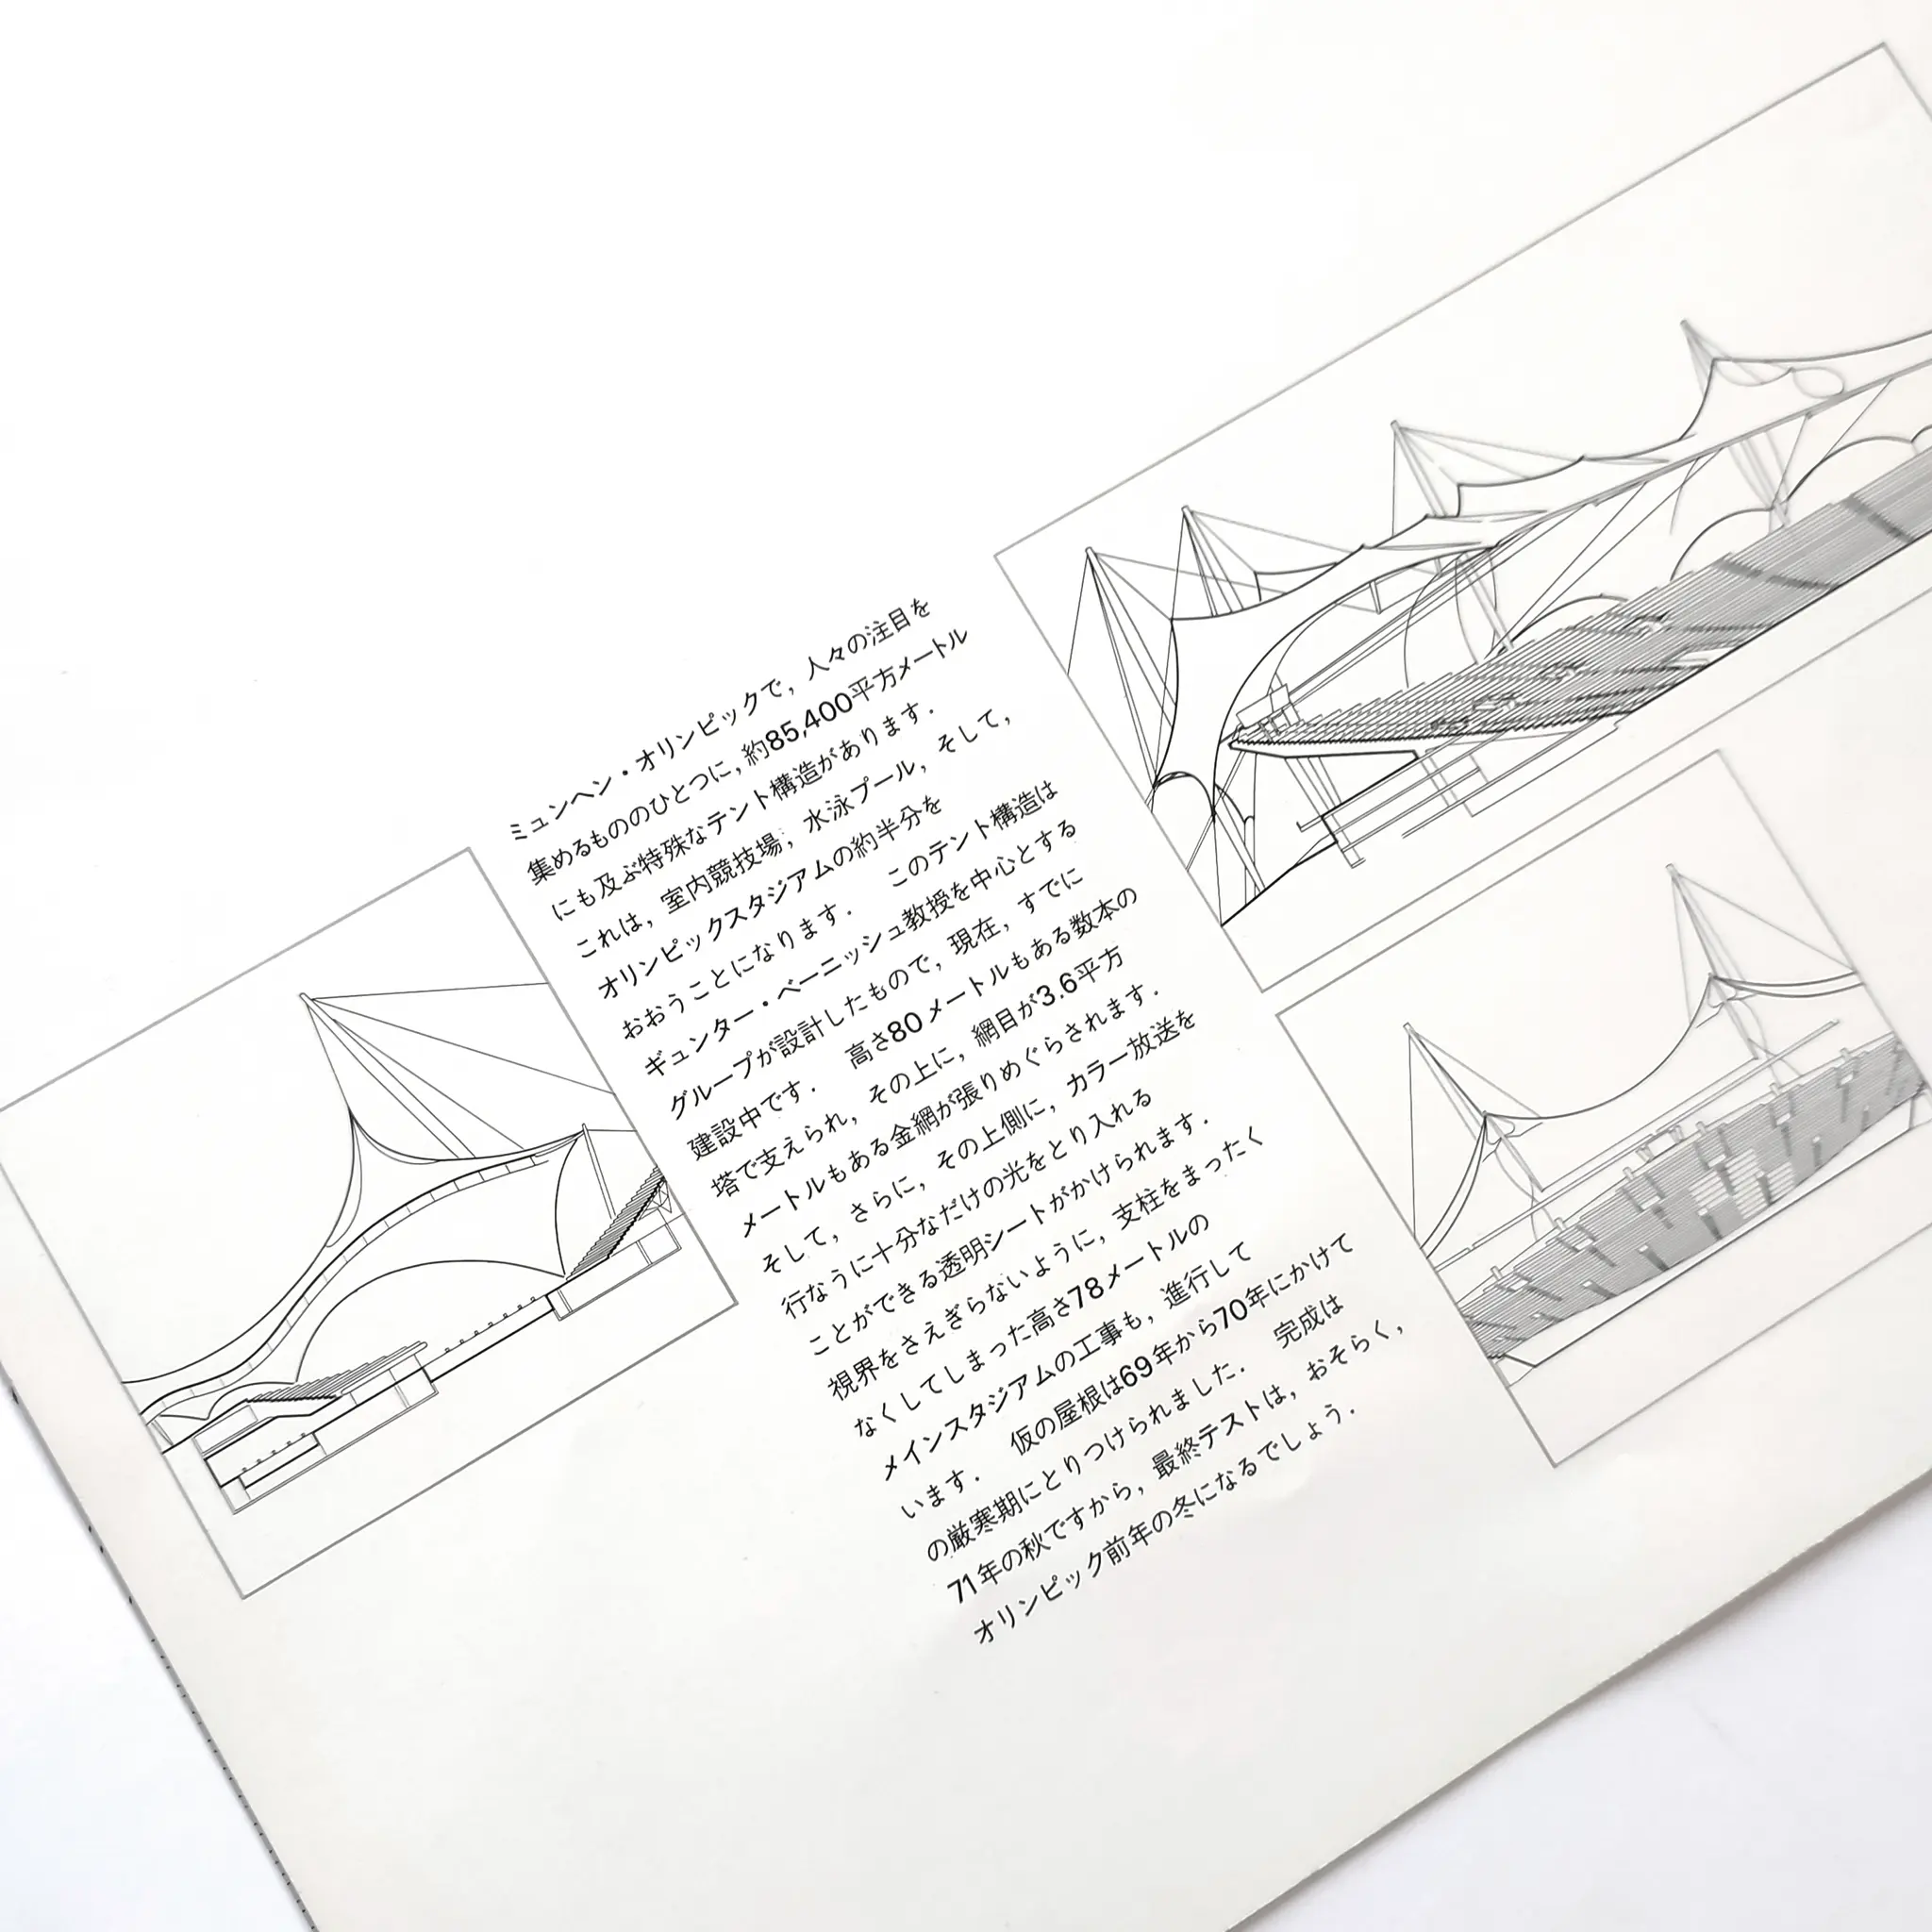 ミュンヘン・オリンピックで，人々の注目を
集めるもののひとつに，約85,400平方メートル
にも及ぶ特殊なテント構造があります．
これは，室内競技場，水泳プール，そして，
オリンピックスタジアムの約半分を
おおうことになります．　このテント構造は
ギュンター・ベーニッシュ教授を中心とする
グループが設計したもので，現在，すでに
建設中です．　高さ80メートルもある数本の
塔で支えられ，その上に，網目が3.6平方
メートルもある金網が張りめぐらされます．
そして，さらに，その上側に，カラー放送を
行なうに十分なだけの光をとり入れる
ことができる透明シートがかけられます．
視界をさえぎらないように，支柱をまったく
なくしてしまった高さ78メートルの
メインスタジアムの工事も，進行して
います．　仮の屋根は69年から70年にかけて
の厳寒期にとりつけられました．　完成は
71年の秋ですから，最終テストは，おそらく，
オリンピック前年の冬になるでしょう．